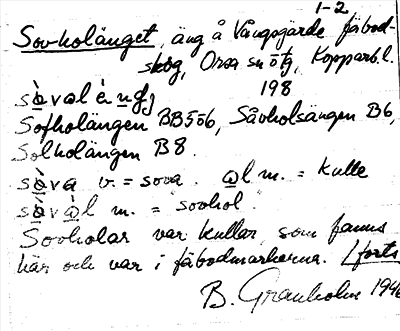 1-2
Sovholänget, äng å Vångsgärde fäbod-
skog, Orsa sn ötg, Kopparb.l.
198
sòvalèngj
Sofholängen BB556, Såvholsängen B6,
Solholängen B8.
sòva v. = sova. òl m. = kulle
sòvàl m. = sovhol.
Sovholar var kullar, som fanns
här och var i fäbodmarkerna. /forts
B. Granholm 1946